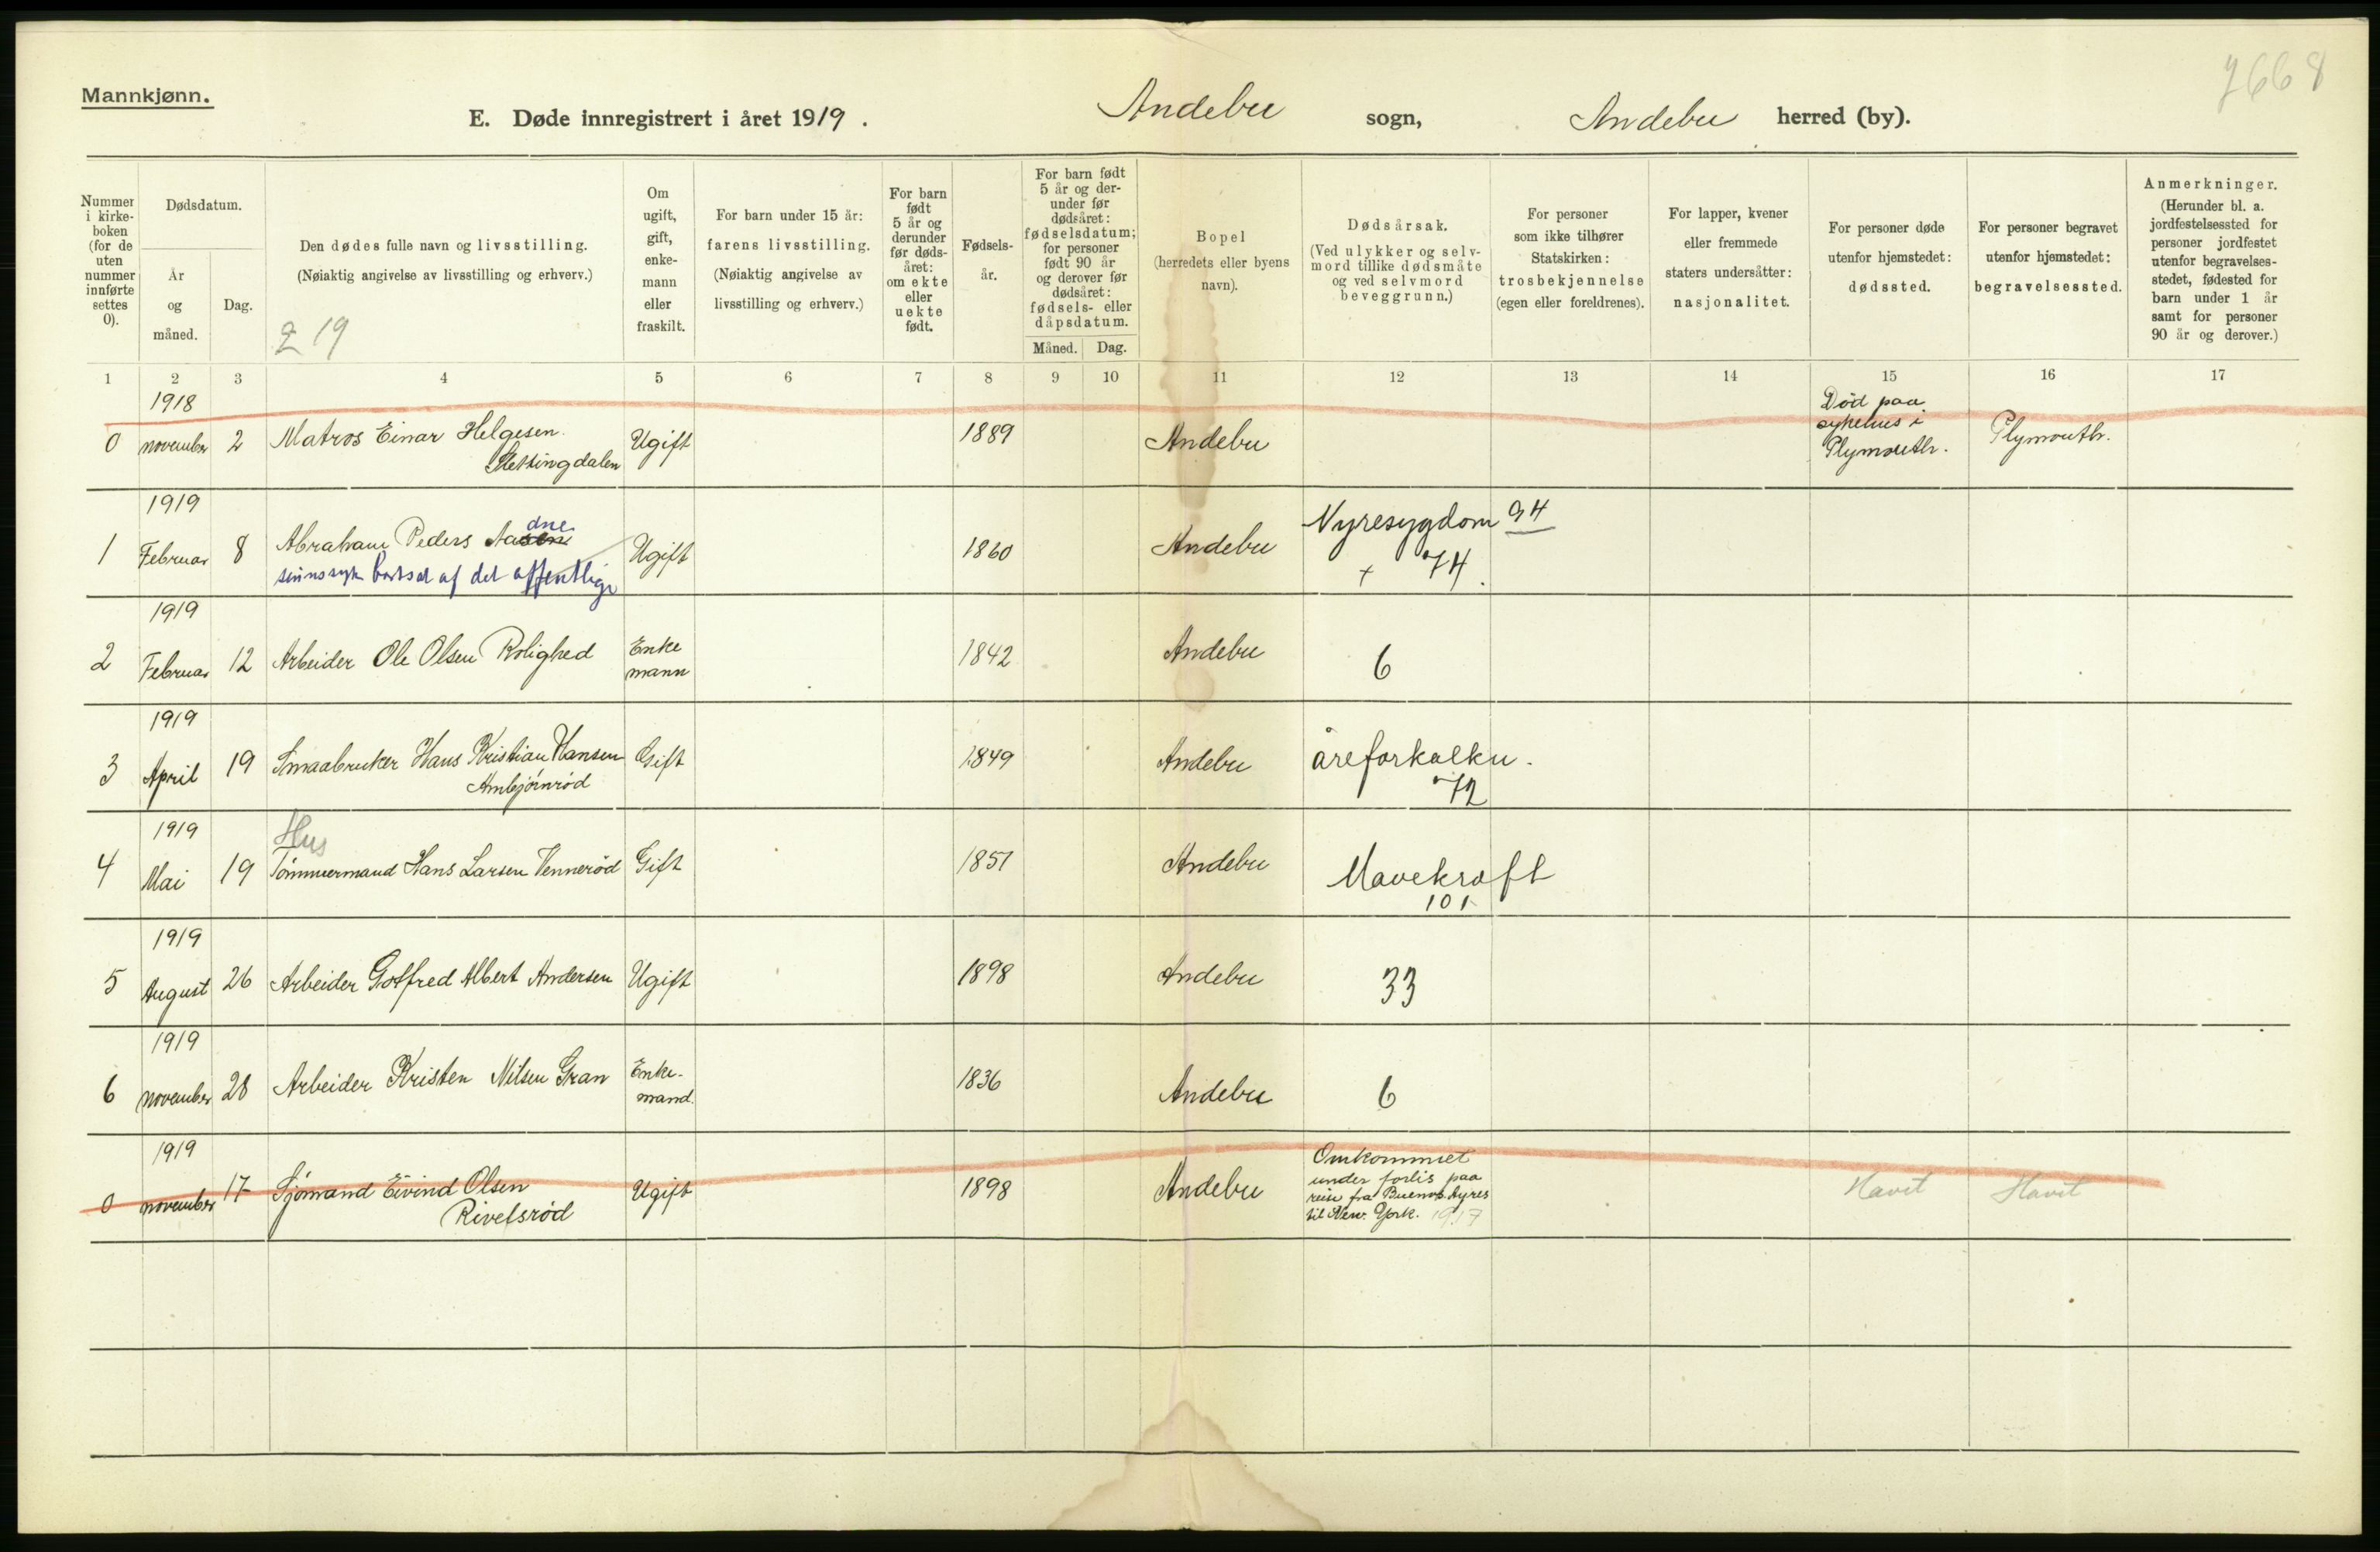 7668
Mannkjønn.
E. Døde innregistrert i året 1919. Andebu sogn, Andebu herred (by).
Nummer i kirkeboken (for de uten nummer innførte settes 0).
Dødsdatum.
År og måned.
Dag.
Den dødes fulle navn og livsstilling.
(Nøiaktig angivelse av livsstilling og erhverv.)
2 19
Om ugift, gift, enkemann eller fraskilt.
For barn under 15 år:
farens livsstilling.
(Nøiaktig angivelse av livsstilling og erhverv.)
For barn født 5 år og derunder før dødsåret: om ekte eller uekte født.
Fødselsår.
For barn født 5 år og derunder før dødsåret: fødselsdatum; for personer født 90 år og derover før dødsåret: fødsels- eller dåpsdatum.
Måned. Dag.
Bopel
(herredets eller byens navn).
Dødsårsak.
(Ved ulykker og selvmord tillike dødsmåte og ved selvmord beveggrunn.)
For personer som ikke tilhører Statskirken: trosbekjennelse (egen eller foreldrenes).
For lapper, kvener eller fremmede staters undersåtter: nasjonalitet.
For personer døde utenfor hjemstedet: dødssted.
For personer begravet utenfor hjemstedet: begravelsessted.
Anmerkninger.
(Herunder bl. a. jordfestelsessted for personer jordfestet utenfor begravelsesstedet, fødested for barn under 1 år samt for personer 90 år og derover.)
1 2 3 4 5 6 7 8 9 10 11 12 13 14 15 16 17
1918
0 november 2 Matros Einar Helgesen Slettingdalen Ugift 1889 Andebu Død paa sykehus i Plymouth. Plymouth.
1919
1 Februar 8 Abraham Peders Aasen dne Ugift 1860 Andebu Nyresygdom 94
sinnssyk bortsat af det offentlige + 74.
1919
2 Februar 12 Arbeider Ole Olsen Rolighed Enkemann 1842 Andebu 6
1919
3 April 19 Smaabruker Hans Kristian Hansen Ambjørnrød Gift 1849 Andebu åreforkalkn. 72
1919
Hus
4 Mai 19 Tømmermand Hans Larsen Vennerød Gift 1851 Andebu Mavekræft 101
1919
5 August 26 Arbeider Gotfred Albert Andersen Ugift 1898 Andebu 33
1919
6 november 28 Arbeider Kristen Nilsen Gran Enkemand. 1836 Andebu 6
1919
0 november 17 Sjömand Eivind Olsen Rivelsrød Ugift 1898 Andebu Omkommet under forlis paa reise fra Buenos Ayres til New. York. 1917 Havet Havet